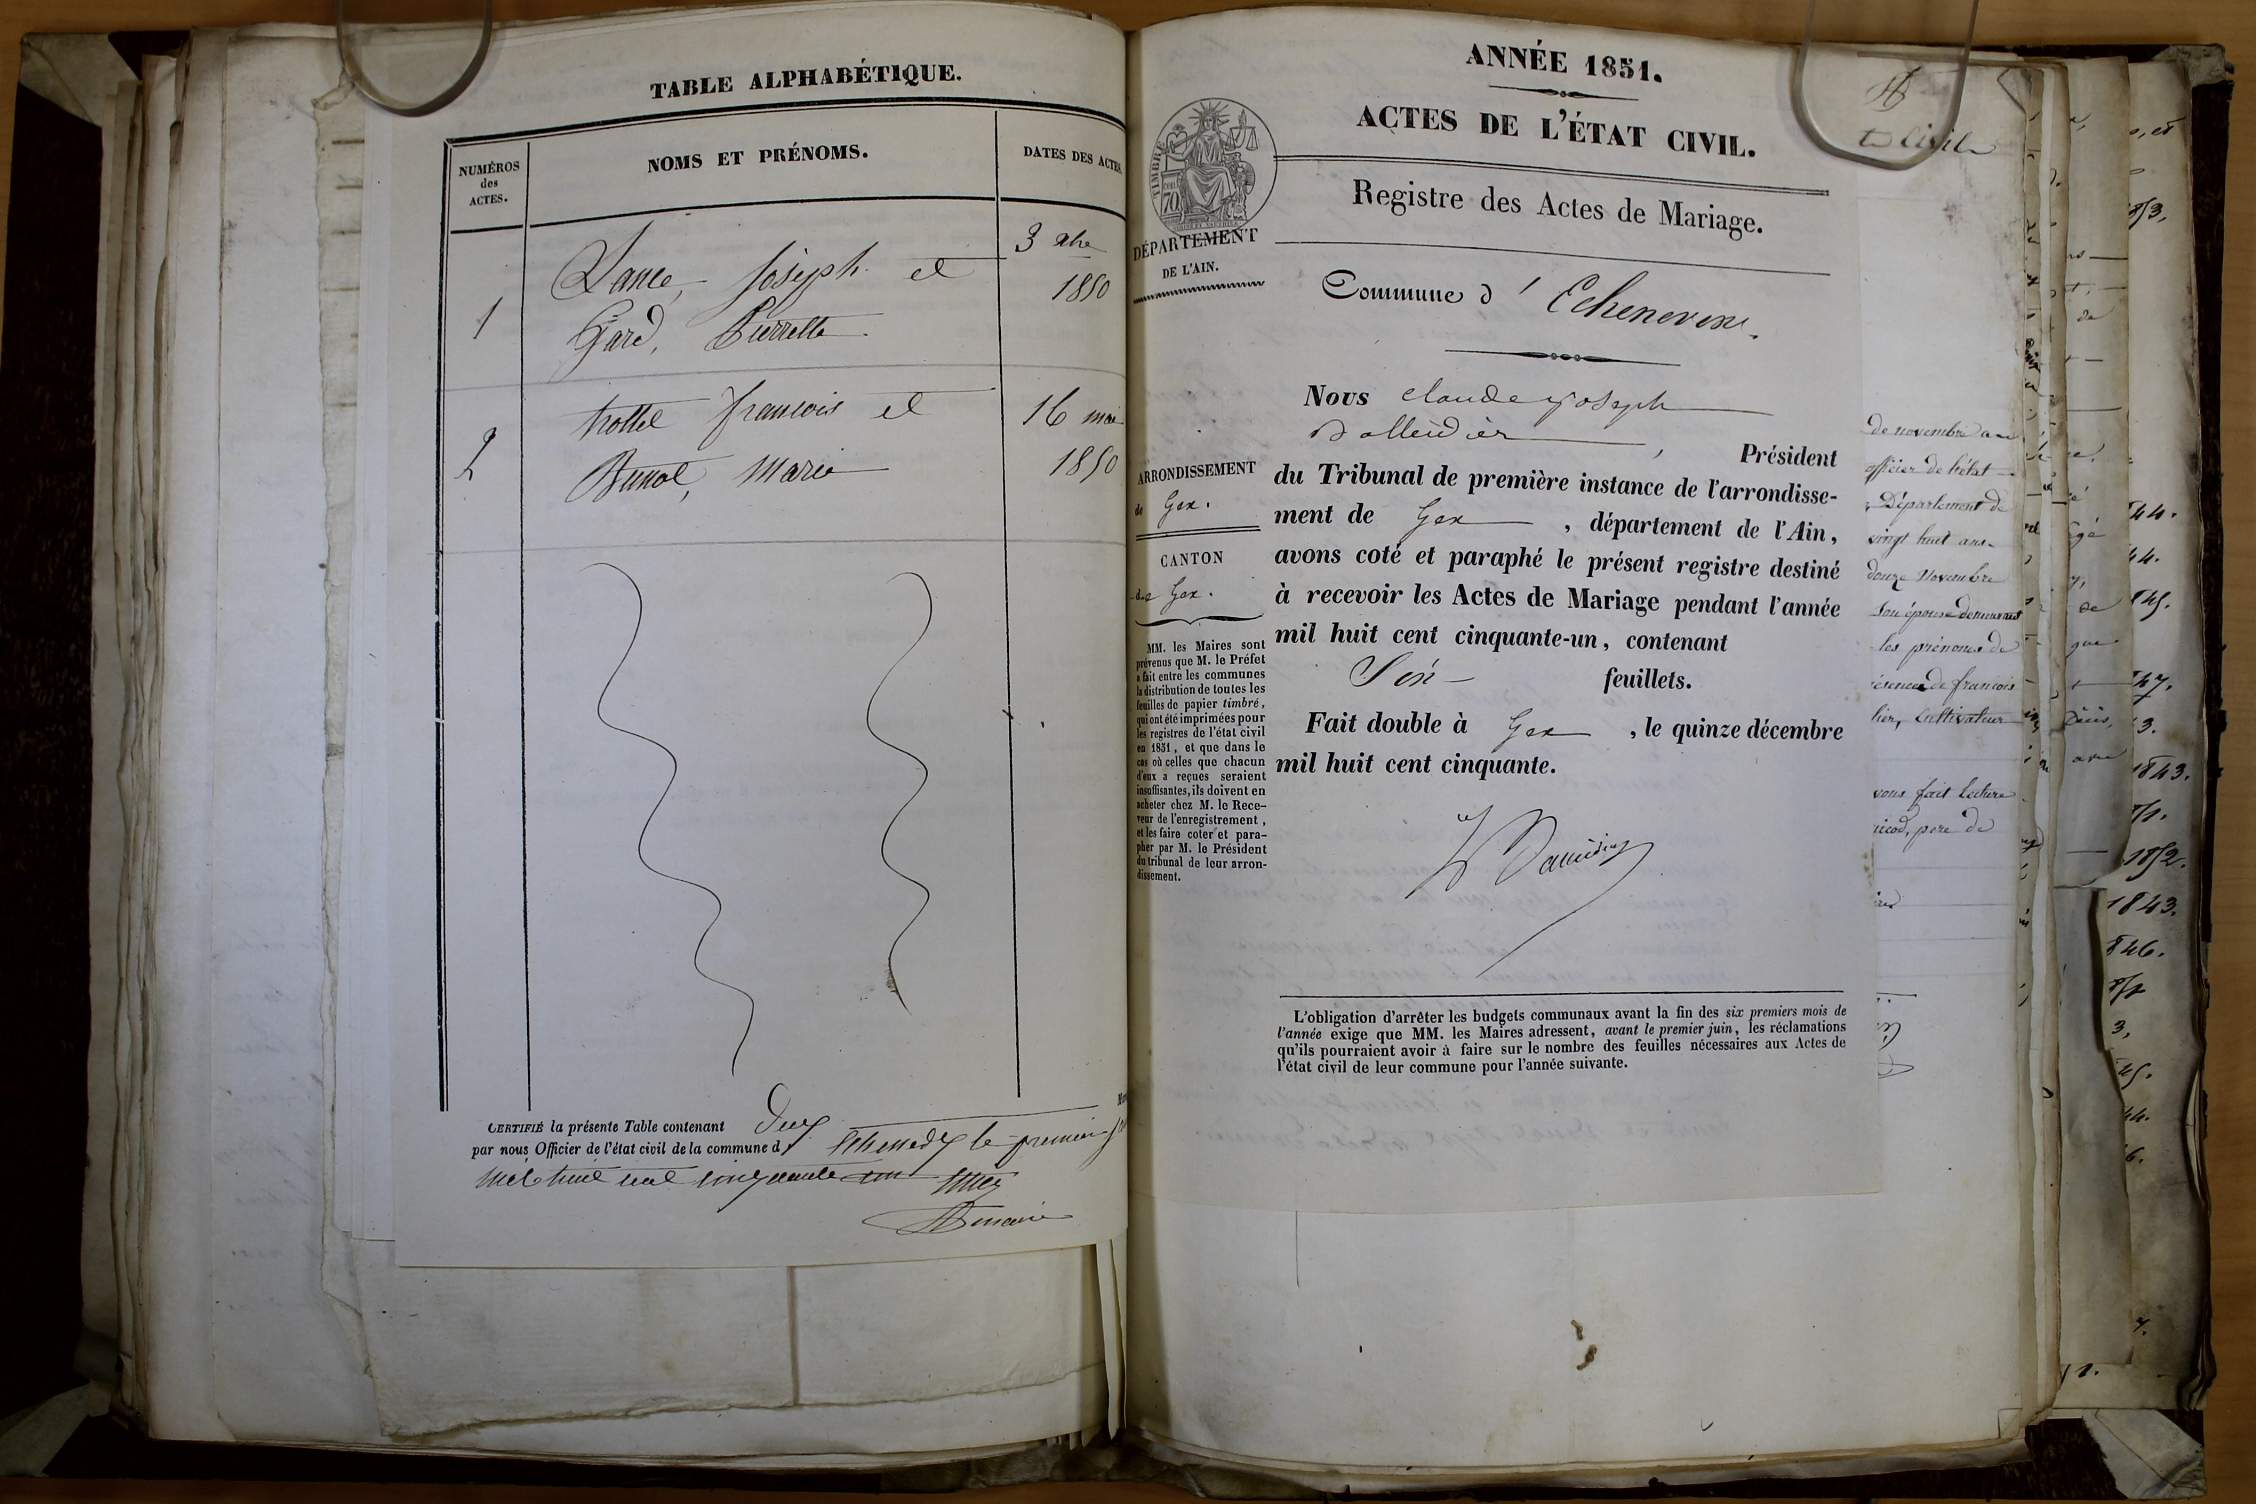 TABLE ALPHABÉTIQUE.
NUMÉROS
des
ACTES.
NOMS ET PRÉNOMS.
DATES DES ACTES.
1
Lance, Joseph et
Gard, Pierrette
3 xbre
1850
2
trottet francois et
Bunot, Marie
16 mai
1850
CERTIFIÉ la présente Table contenant Deux
par nous Officier de l'état civil de la commune d' le premier
mil huit cent cinquante
ANNÉE 1851.
ACTES DE L'ÉTAT CIVIL.
Registre des Actes de Mariage.
TIMBRE
70
DÉPARTEMENT
DE L'AIN.
Commune d' Echenevex.
ARRONDISSEMENT
de Gex.
CANTON
de Gex.
MM. les Maires sont
prévenus que M. le Préfet
a fait entre les communes
la distribution de toutes les
feuilles de papier timbré,
qui ont été imprimées pour
les registres de l'état civil
en 1851, et que dans le
cas où celles que chacun
d'eux a reçues seraient
insuffisantes, ils doivent en
acheter chez M. le Rece-
veur de l'enregistrement,
et les faire coter et para-
pher par M. le Président
du tribunal de leur arron-
dissement.
Nous Claude Joseph
, Président
du Tribunal de première instance de l'arrondisse-
ment de Gex , département de l'Ain,
avons coté et paraphé le présent registre destiné
à recevoir les Actes de Mariage pendant l'année
mil huit cent cinquante-un, contenant
Six feuillets.
Fait double à Gex , le quinze décembre
mil huit cent cinquante.
L'obligation d'arrêter les budgets communaux avant la fin des six premiers mois de
l'année exige que MM. les Maires adressent, avant le premier juin, les réclamations
qu'ils pourraient avoir à faire sur le nombre des feuilles nécessaires aux Actes de
l'état civil de leur commune pour l'année suivante.
de novembre
officier de l'état
Département de
vingt huit ans
douze Novembre
son épouse demeurant
les prénoms de
de francois
cultivateur
vous fait lecture
père de
1843.
1852.
1843.